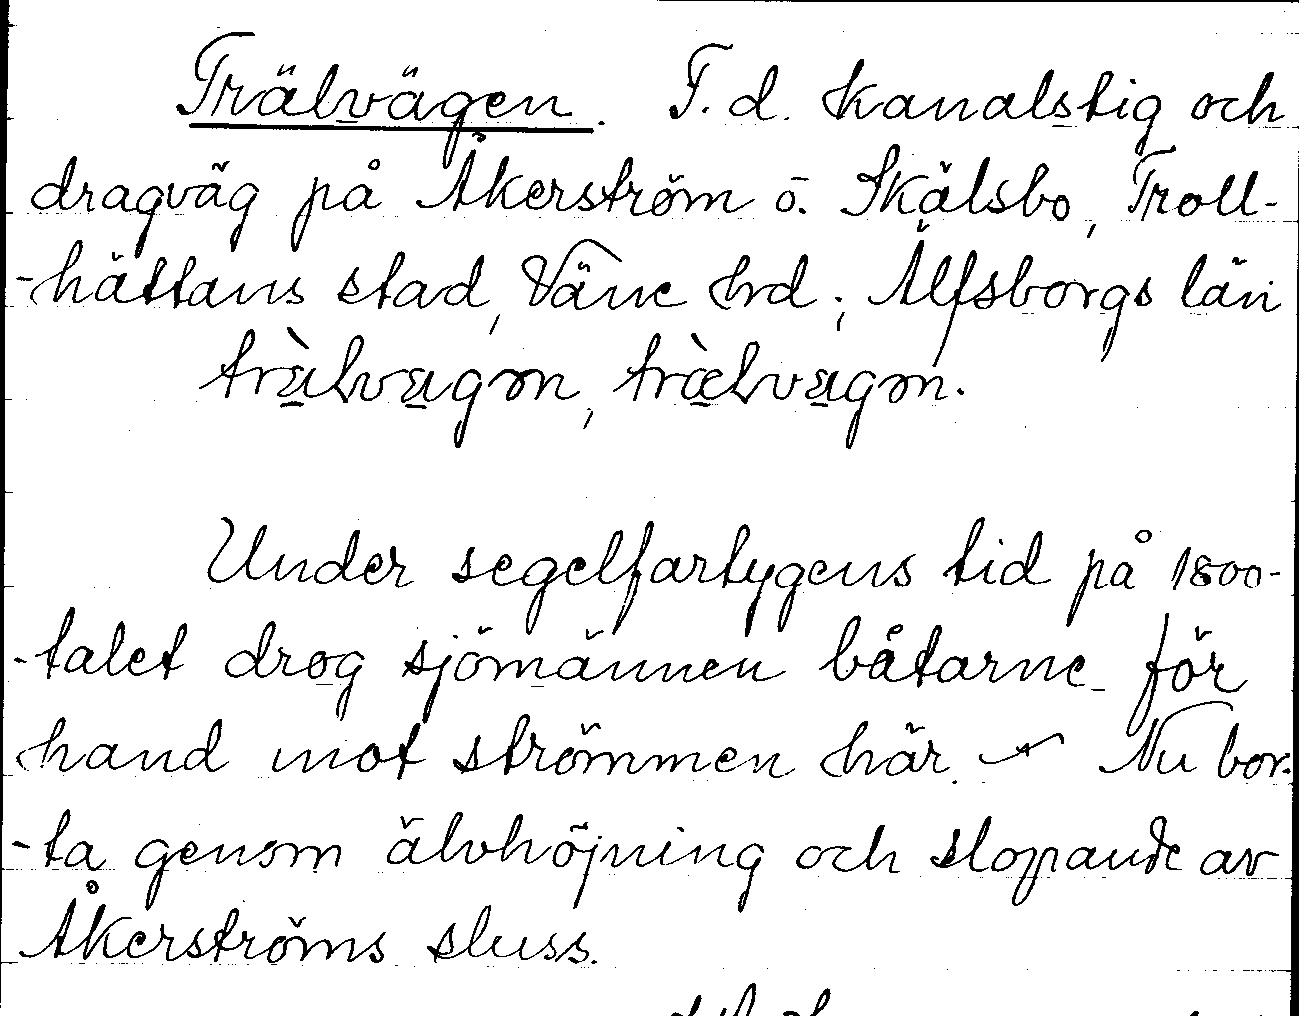 Trälvägen. F.d. kanalstig och
dragväg på Åkerström ö. Skälsbo, Troll-
-hättans stad, Väne hrd; Älfsborgs län
Under segelfartygens tid på 1800-
-talet drog sjömännen båtarne för
hand mot strömmen här. — Nu bor-
-ta genom älvhöjning och slopande av
Åkerströms sluss.